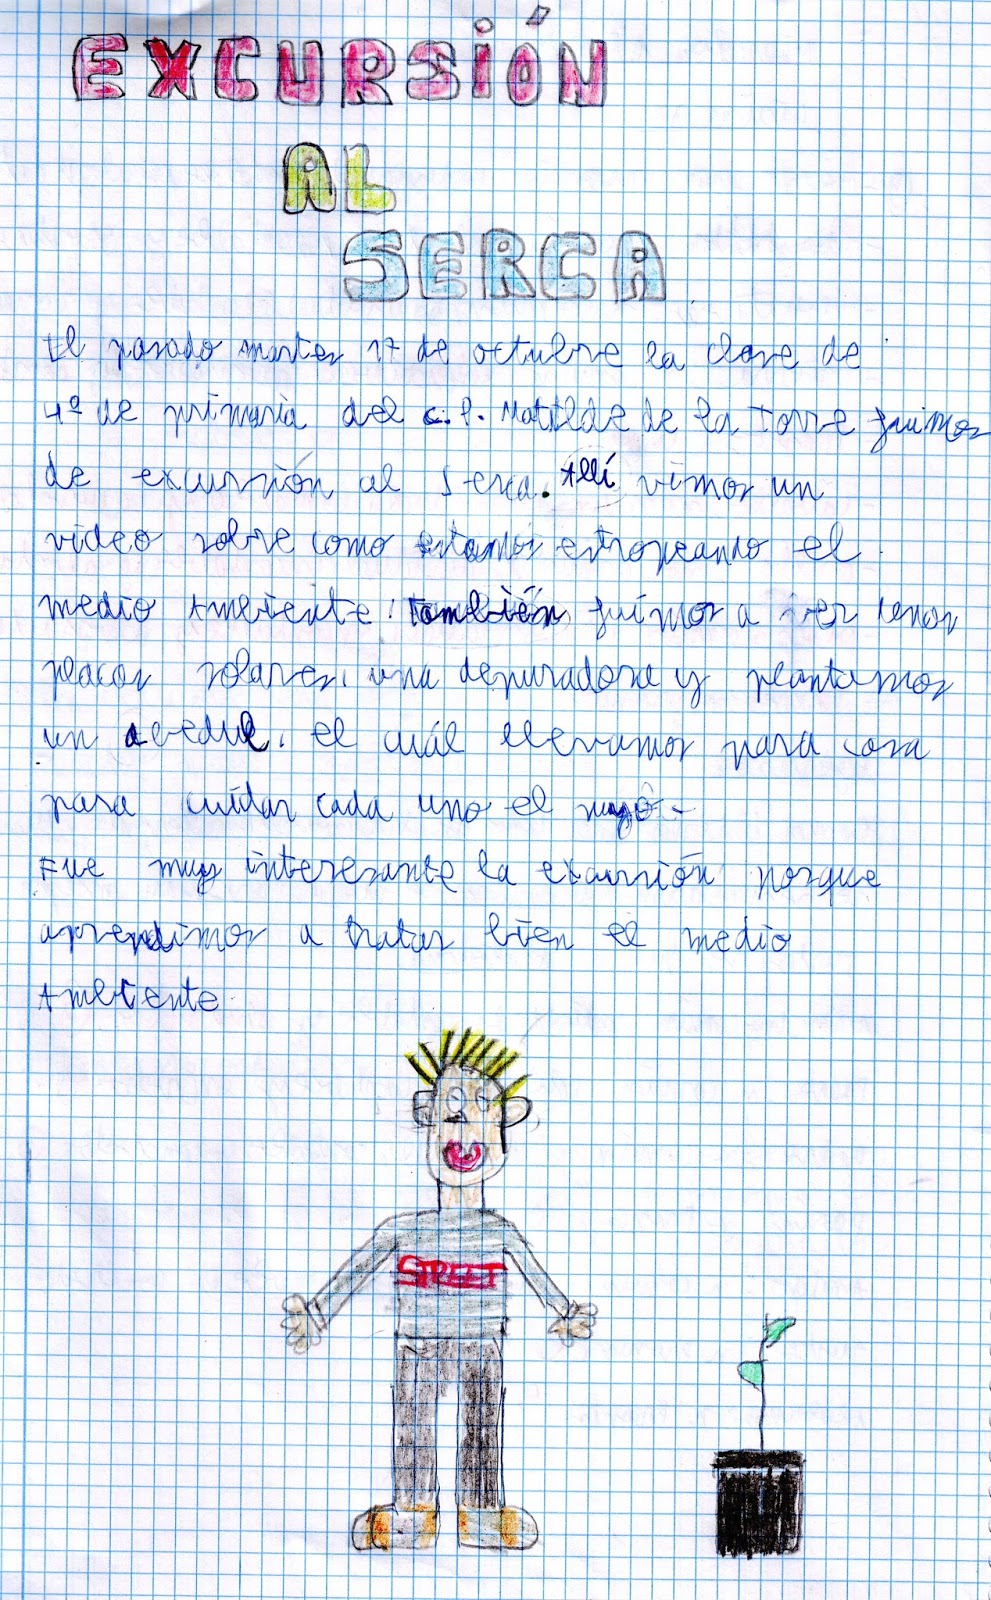 EXCURSIÓN
AL
SERCA
El pasado martes 17 de octubre la clase de
4º de primaria del c.p. Matilde de la Torre fuimos
de excursión al Serca. Allí vimos un
video sobre como estamos estropeando el
medio Ambiente. También fuimos a ver
placas solares, una depuradora y plantamos
un el cuál llevamos para casa
para cuidar cada uno el suyo.
Fue muy interesante la excursión porque
aprendimos a tratar bien el medio
Ambiente
STREET